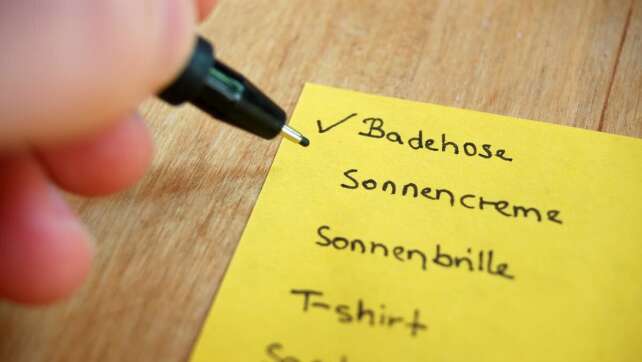 ✓ Badehose
Sonnencreme
Sonnenbrille
T-shirt